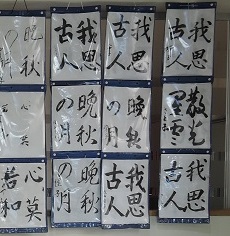 我思
古人
我思
古人
我思
古人
晩秋
の月
我思
古人
我思
古人
晩秋
の月
晩秋
の月
晩秋
の月
心莫
若和